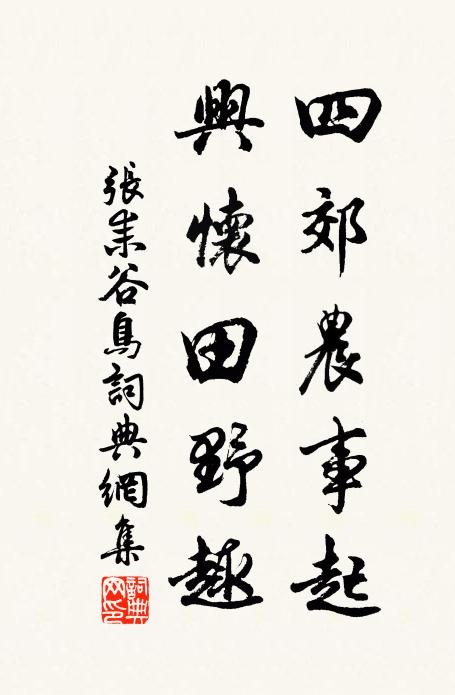 四郊農事起
興懷田野趣
張耒谷鳥詞典網集
詞典網印